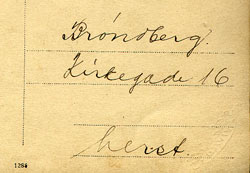 Bröndberg.
Kirkegade 16
herst.
1288